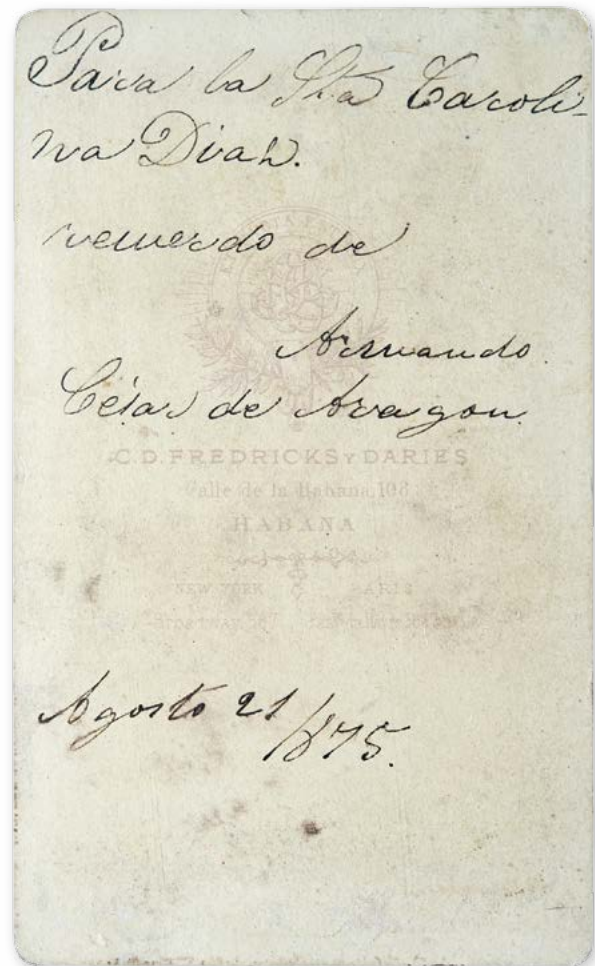 Para la Sta Caroli-
na Diaz.
recuerdo de
Armando
César de Aragon
C.D. FREDRICKS Y DARIES
Calle de la Habana, 108
HABANA
NEW YORK PARIS
Agosto 21/875.